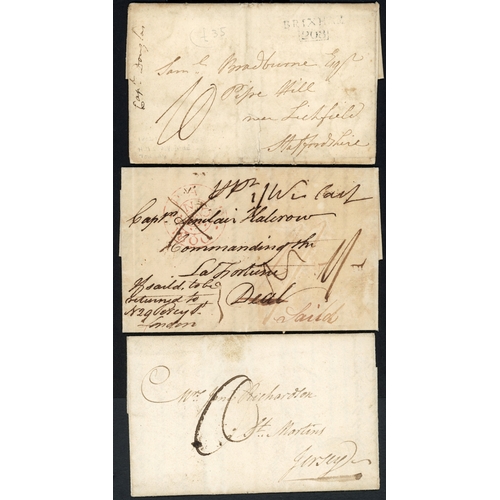 Capt Douglas
£35
BRIXHAM
Saml Bradburne Esqr
Pipe Hill
near Lichfield
Staffordshire
10
Captn Sinclair Halcrow
Commanding the
La Fortune
Deal
If saild, to be
returned to
London
Saild
Mrs Jane Richardson
St. Martins
Jersey